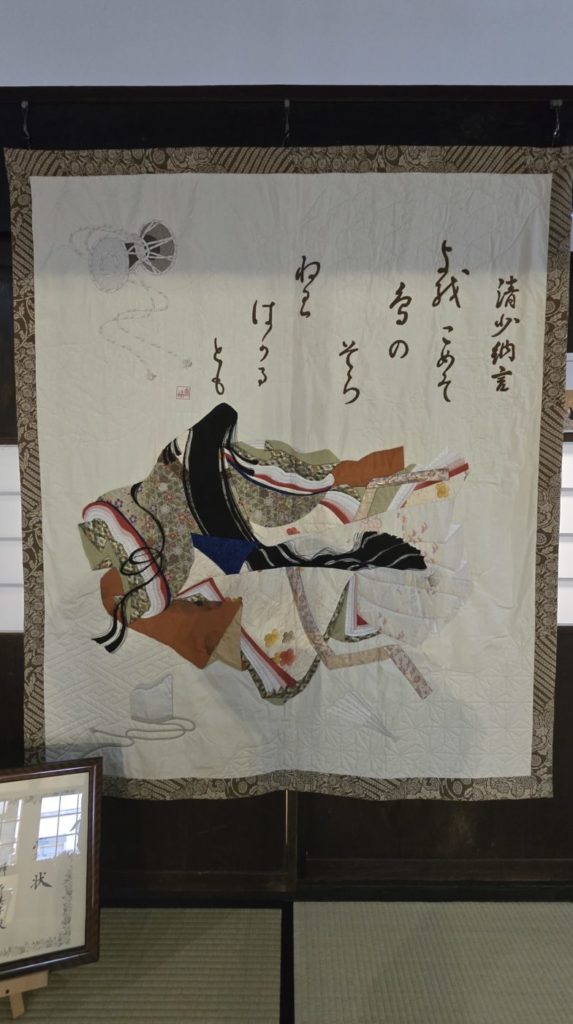 清少納言
よをこめて
鳥の
そら
ねは
はかる
とも
状